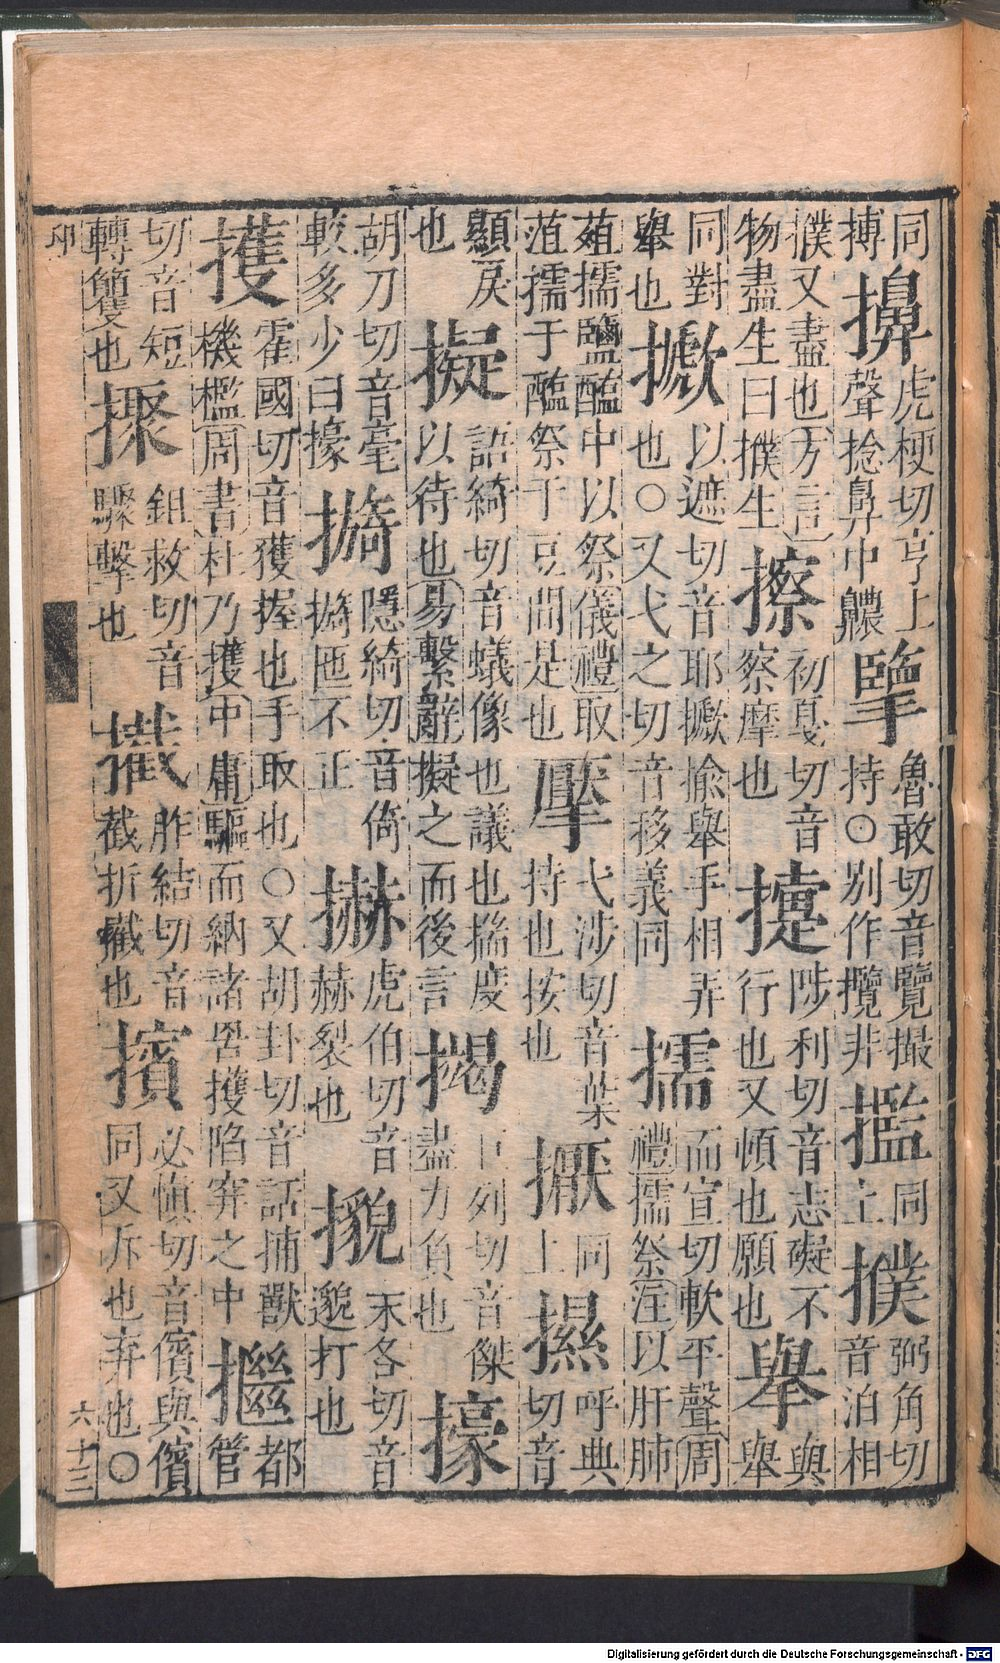 同
搏
擤
虎梗切亨上
聲捻鼻中膿
擥
魯敢切音覽撮
持○别作攬非
㩜
同
上
擈
弼角切
音泊相
擈又盡也方言
物盡生曰擈生
擦
初戛切音
察摩也
陟利切音志礙不
行也又頓也願也
擧
與
舉
同對
舉也
擨
以遮切音耶擨揄舉手相弄
也○又弋之切音移義同
擩
而宣切軟平聲周
禮擩祭注以肝肺
菹擩鹽醢中以祭儀禮取
菹擩于醢祭于豆間是也
擪
弋涉切音葉
持也按也
擫
同
上
呼典
切音
顯戾
也
擬
語綺切音蟻像也議也揣度
以待也易繫辭擬之而後言
巨列切音傑
盡力負也
胡刀切音毫
較多少曰
隱綺切音倚
匜不正
虎伯切音
赫裂也
末各切音
邈打也
擭
霍國切音獲握也手取也○又胡卦切音話捕獸
機檻周書杜乃擭中庸驅而納諸罟擭陷穽之中
都
管
切音短
轉籰也
鉏救切音
驟擊也
胙結切音
截折也
擯
必愼切音儐與儐
同又斥也弃也○
邱
六十三
Digitalisierung gefördert durch die Deutsche Forschungsgemeinschaft - DFG